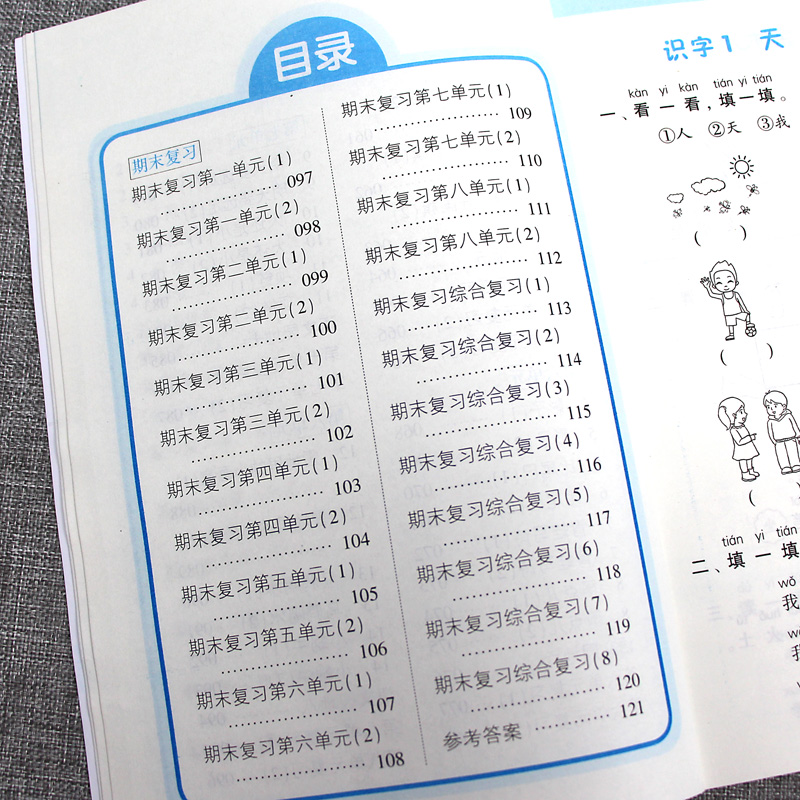 目录
期末复习
期末复习第一单元(1)
………………… 097
期末复习第一单元(2)
………………… 098
期末复习第二单元(1)
………………… 099
期末复习第二单元(2)
………………… 100
期末复习第三单元(1)
………………… 101
期末复习第三单元(2)
………………… 102
期末复习第四单元(1)
………………… 103
期末复习第四单元(2)
………………… 104
期末复习第五单元(1)
………………… 105
期末复习第五单元(2)
………………… 106
期末复习第六单元(1)
………………… 107
期末复习第六单元(2)
………………… 108
期末复习第七单元(1)
………………… 109
期末复习第七单元(2)
………………… 110
期末复习第八单元(1)
………………… 111
期末复习第八单元(2)
………………… 112
期末复习综合复习(1)
………………… 113
期末复习综合复习(2)
………………… 114
期末复习综合复习(3)
………………… 115
期末复习综合复习(4)
………………… 116
期末复习综合复习(5)
………………… 117
期末复习综合复习(6)
………………… 118
期末复习综合复习(7)
………………… 119
期末复习综合复习(8)
………………… 120
参考答案 ………… 121
识字1 天
kàn yi kàn tián yi tián
一、看一看，填一填。
①人 ②天 ③我
( )
( )
( )
tián yi tián
二、填一填
wǒ
我
我